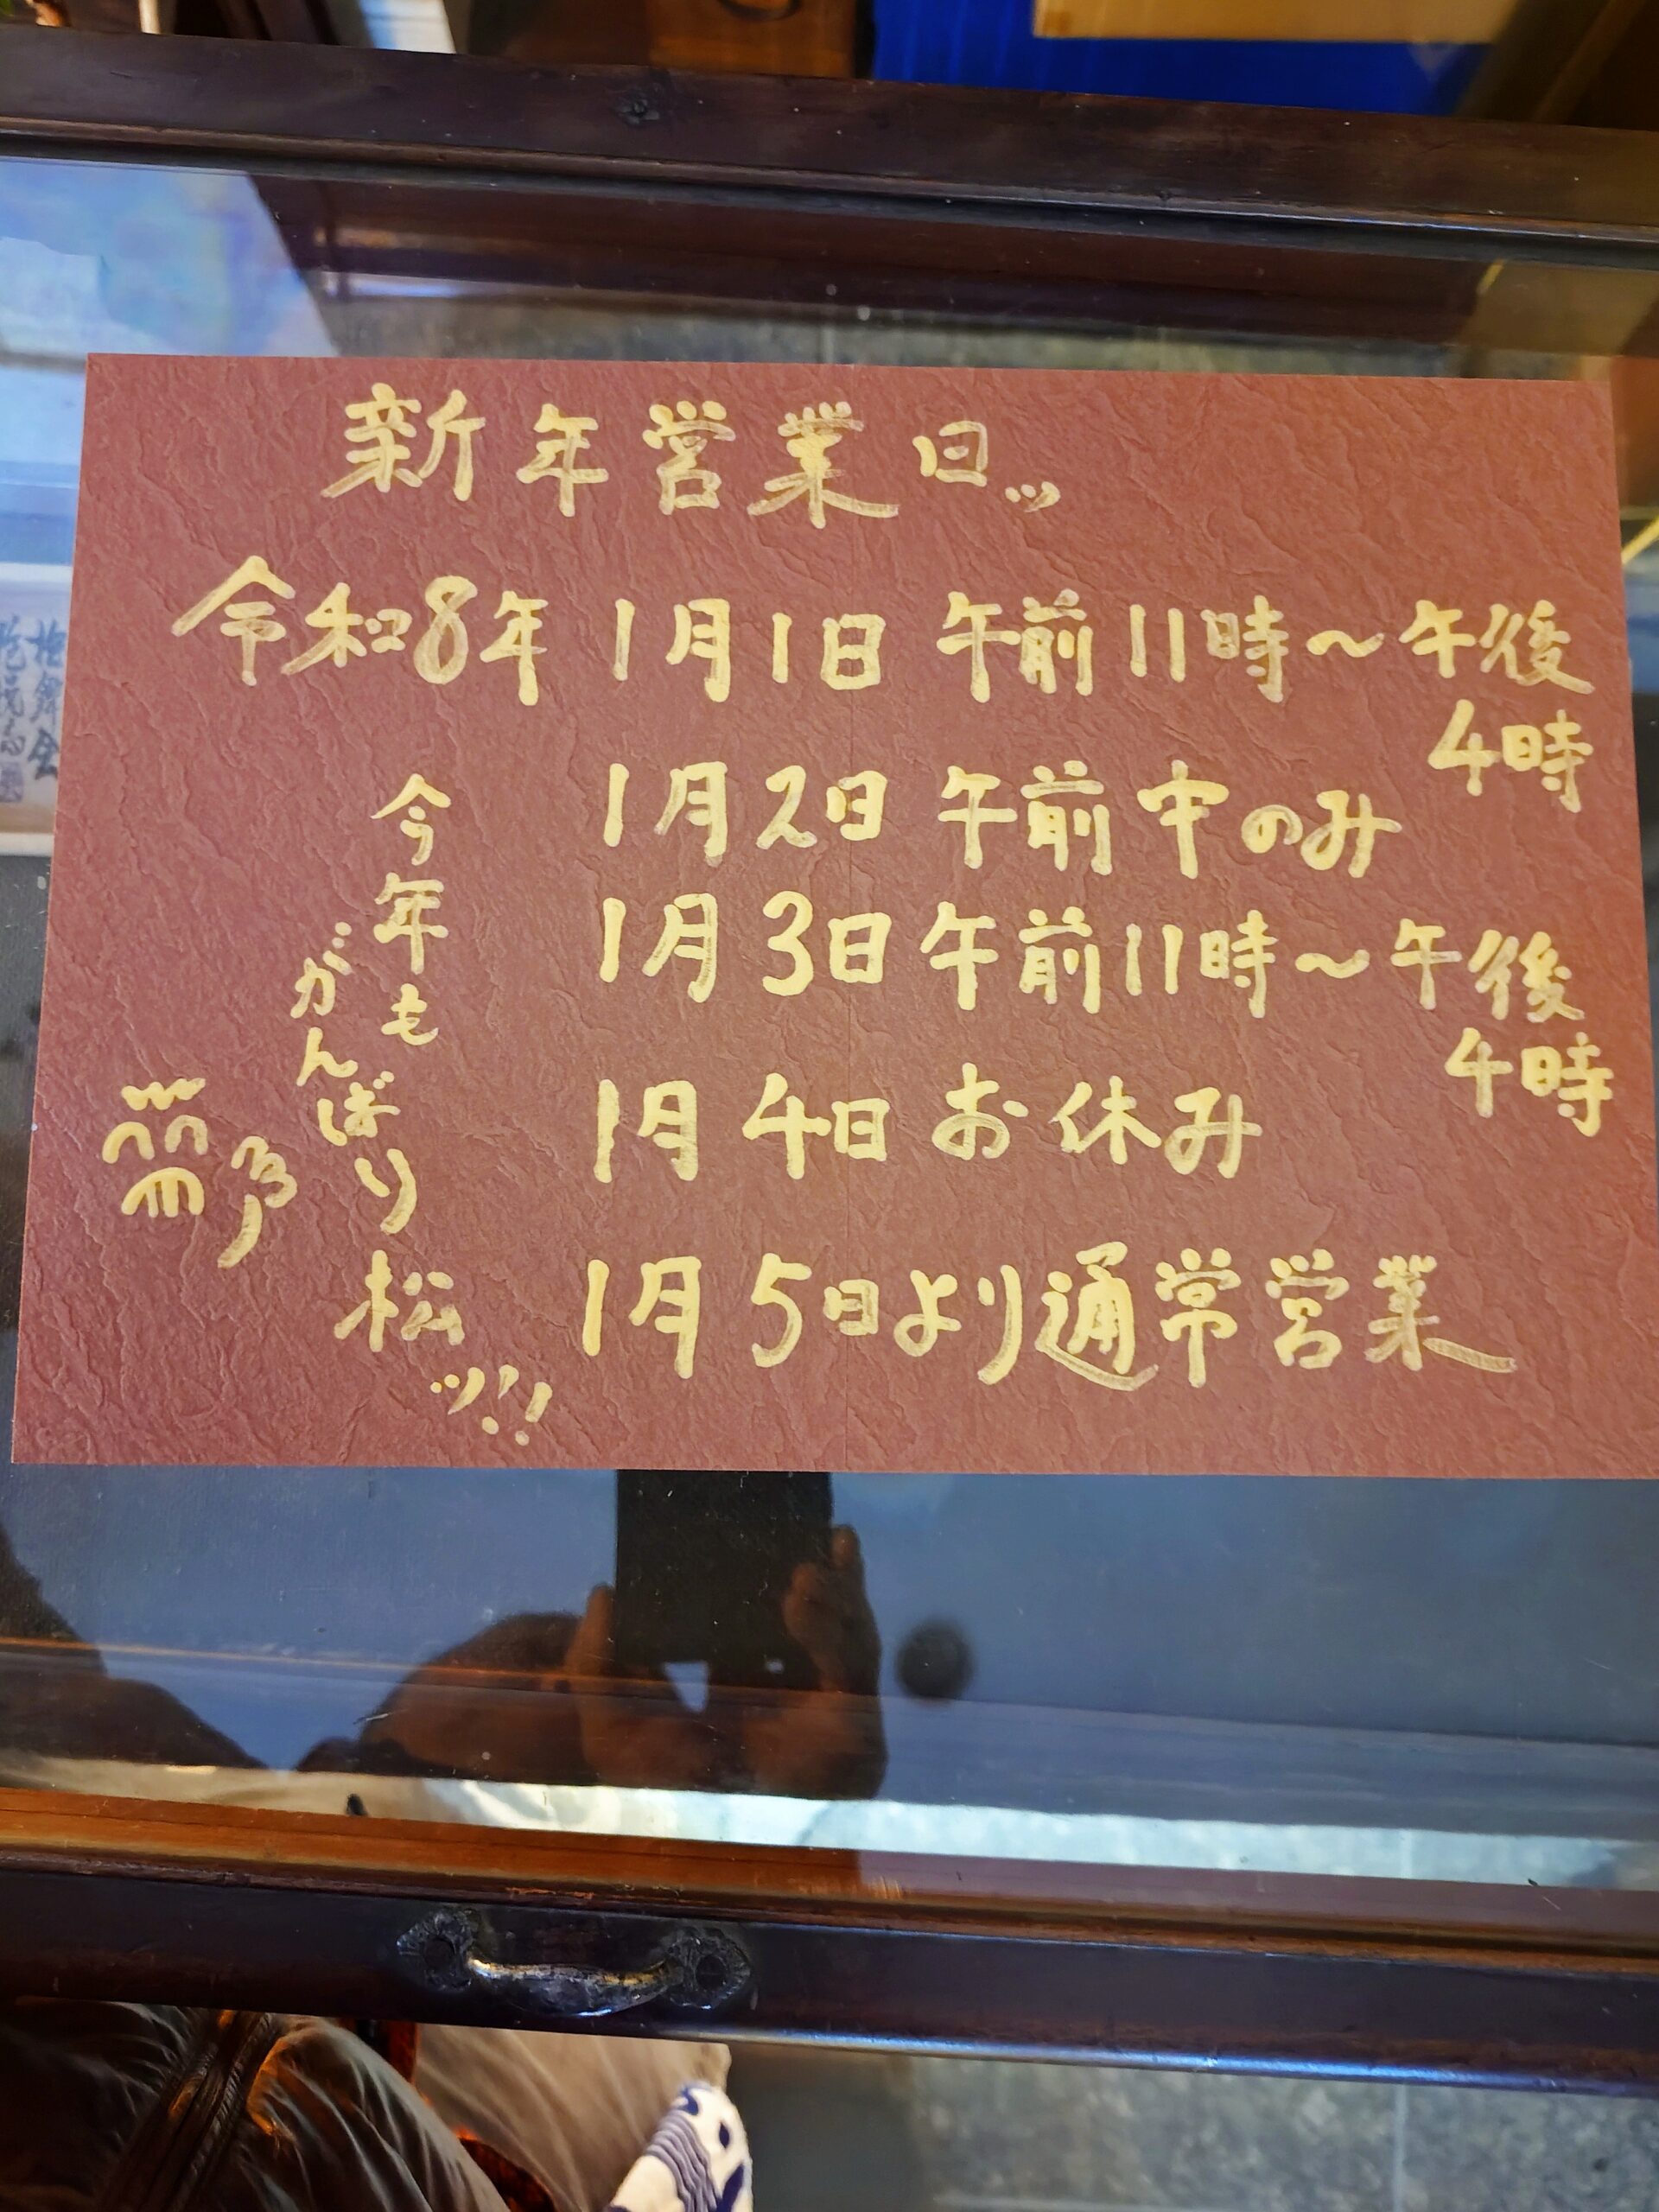 新年営業日ッ
令和8年 1月1日 午前11時〜午後
4時
1月2日 午前中のみ
1月3日 午前11時〜午後
4時
1月4日 お休み
1月5日より通常営業
今年も
がんばり
松
ッ!!